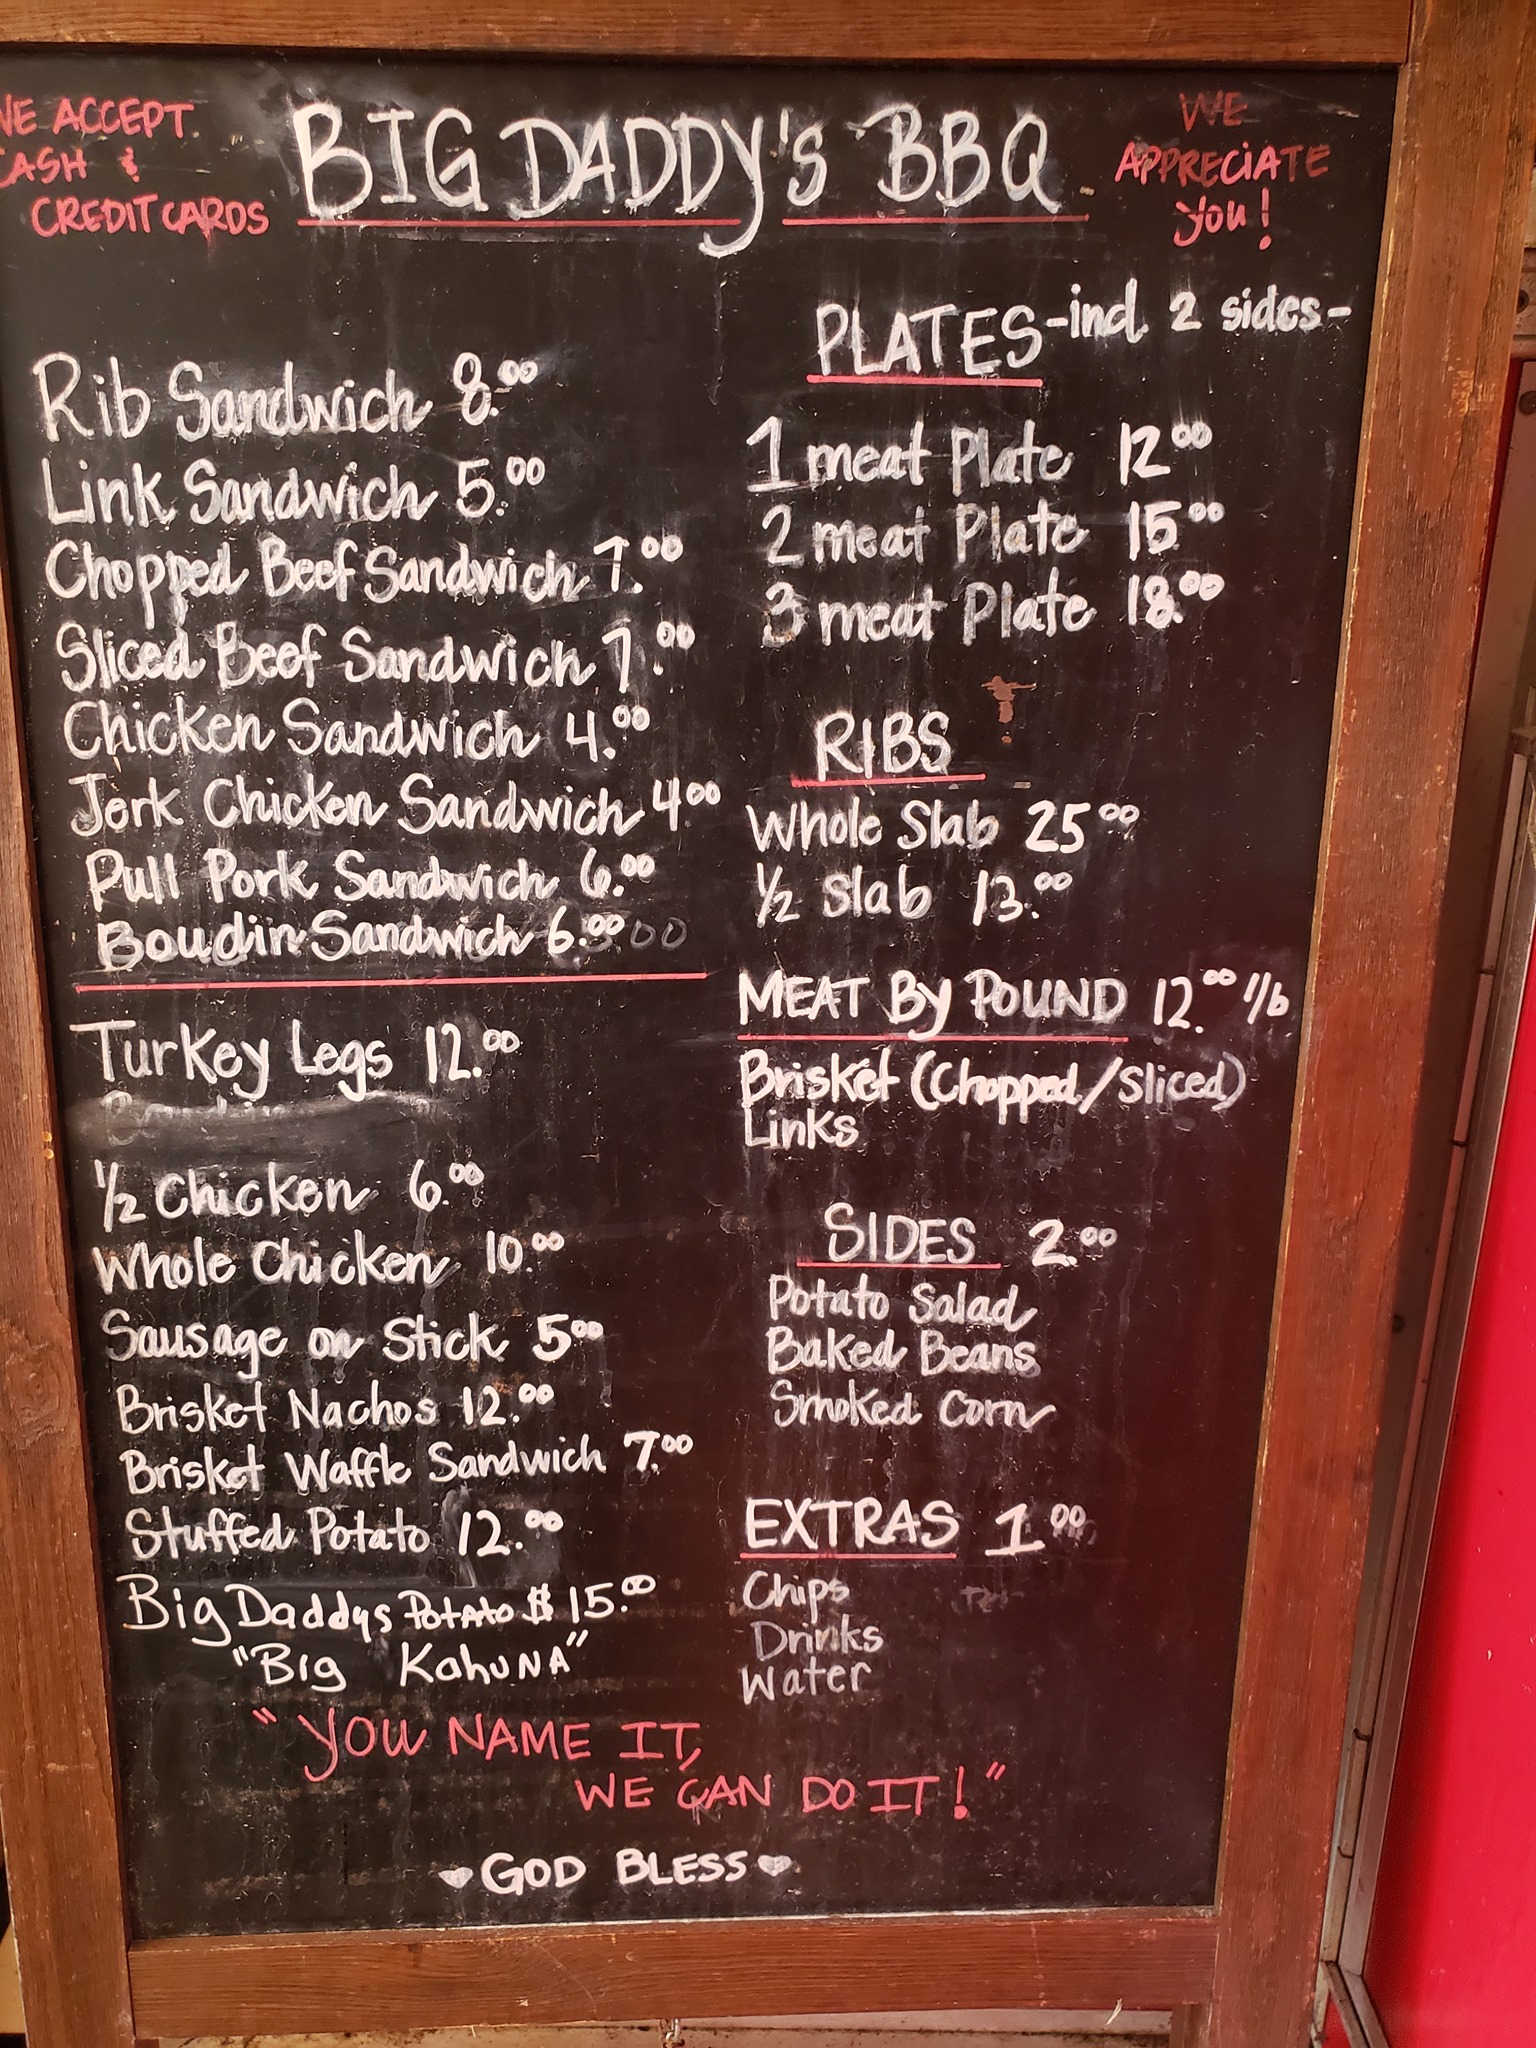 WE ACCEPT
CASH &
CREDIT CARDS
BIG DADDY's BBQ
WE
APPRECiATE
you!
Rib Sandwich 8.00
Link Sandwich 5.00
Chopped Beef Sandwich 7.00
Sliced Beef Sandwich 7.00
Chicken Sandwich 4.00
Jerk Chicken Sandwich 4.00
Pull Pork Sandwich 6.00
Boudin Sandwich 6.00
Turkey Legs 12.00
1/2 Chicken 6.00
Whole Chicken 10.00
Sausage on Stick 5.00
Brisket Nachos 12.00
Brisket Waffle Sandwich 7.00
Stuffed Potato 12.00
Big Daddys Potato $15.00
"Big Kahuna"
PLATES -incl. 2 sides-
1 meat Plate 12.00
2 meat Plate 15.00
3 meat Plate 18.00
RIBS
Whole Slab 25.00
1/2 Slab 13.00
MEAT By POUND 12.00 1/b
Brisket (Chopped/Sliced)
Links
SIDES 2.00
Potato Salad
Baked Beans
Smoked Corn
EXTRAS 1.00
Chips
Drinks
Water
"YOU NAME IT,
WE CAN DO IT!"
GOD BLESS